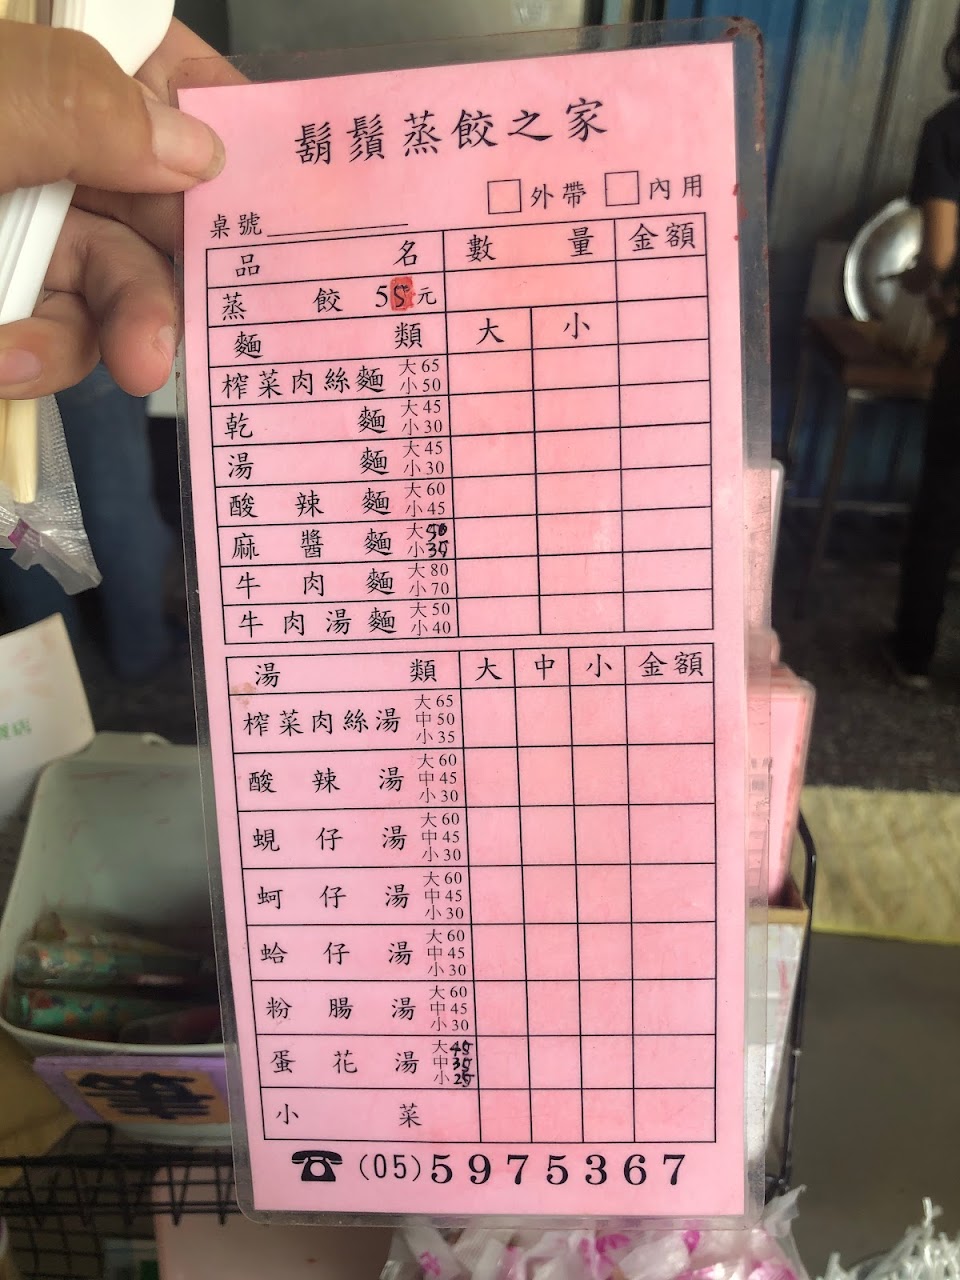 鬍鬚蒸餃之家
桌號 外帶 內用
品名 數量 金額
蒸餃 55元
麵類 大 小
榨菜肉絲麵 大65 小50
乾麵 大45 小30
湯麵 大45 小30
酸辣麵 大60 小45
麻醬麵 大50 小35
牛肉麵 大80 小70
牛肉湯麵 大50 小40
湯類 大 中 小 金額
榨菜肉絲湯 大65 中50 小35
酸辣湯 大60 中45 小30
蜆仔湯 大60 中45 小30
蚵仔湯 大60 中45 小30
蛤仔湯 大60 中45 小30
粉腸湯 大60 中45 小30
蛋花湯 大45 中35 小25
小菜
☎(05)5975367